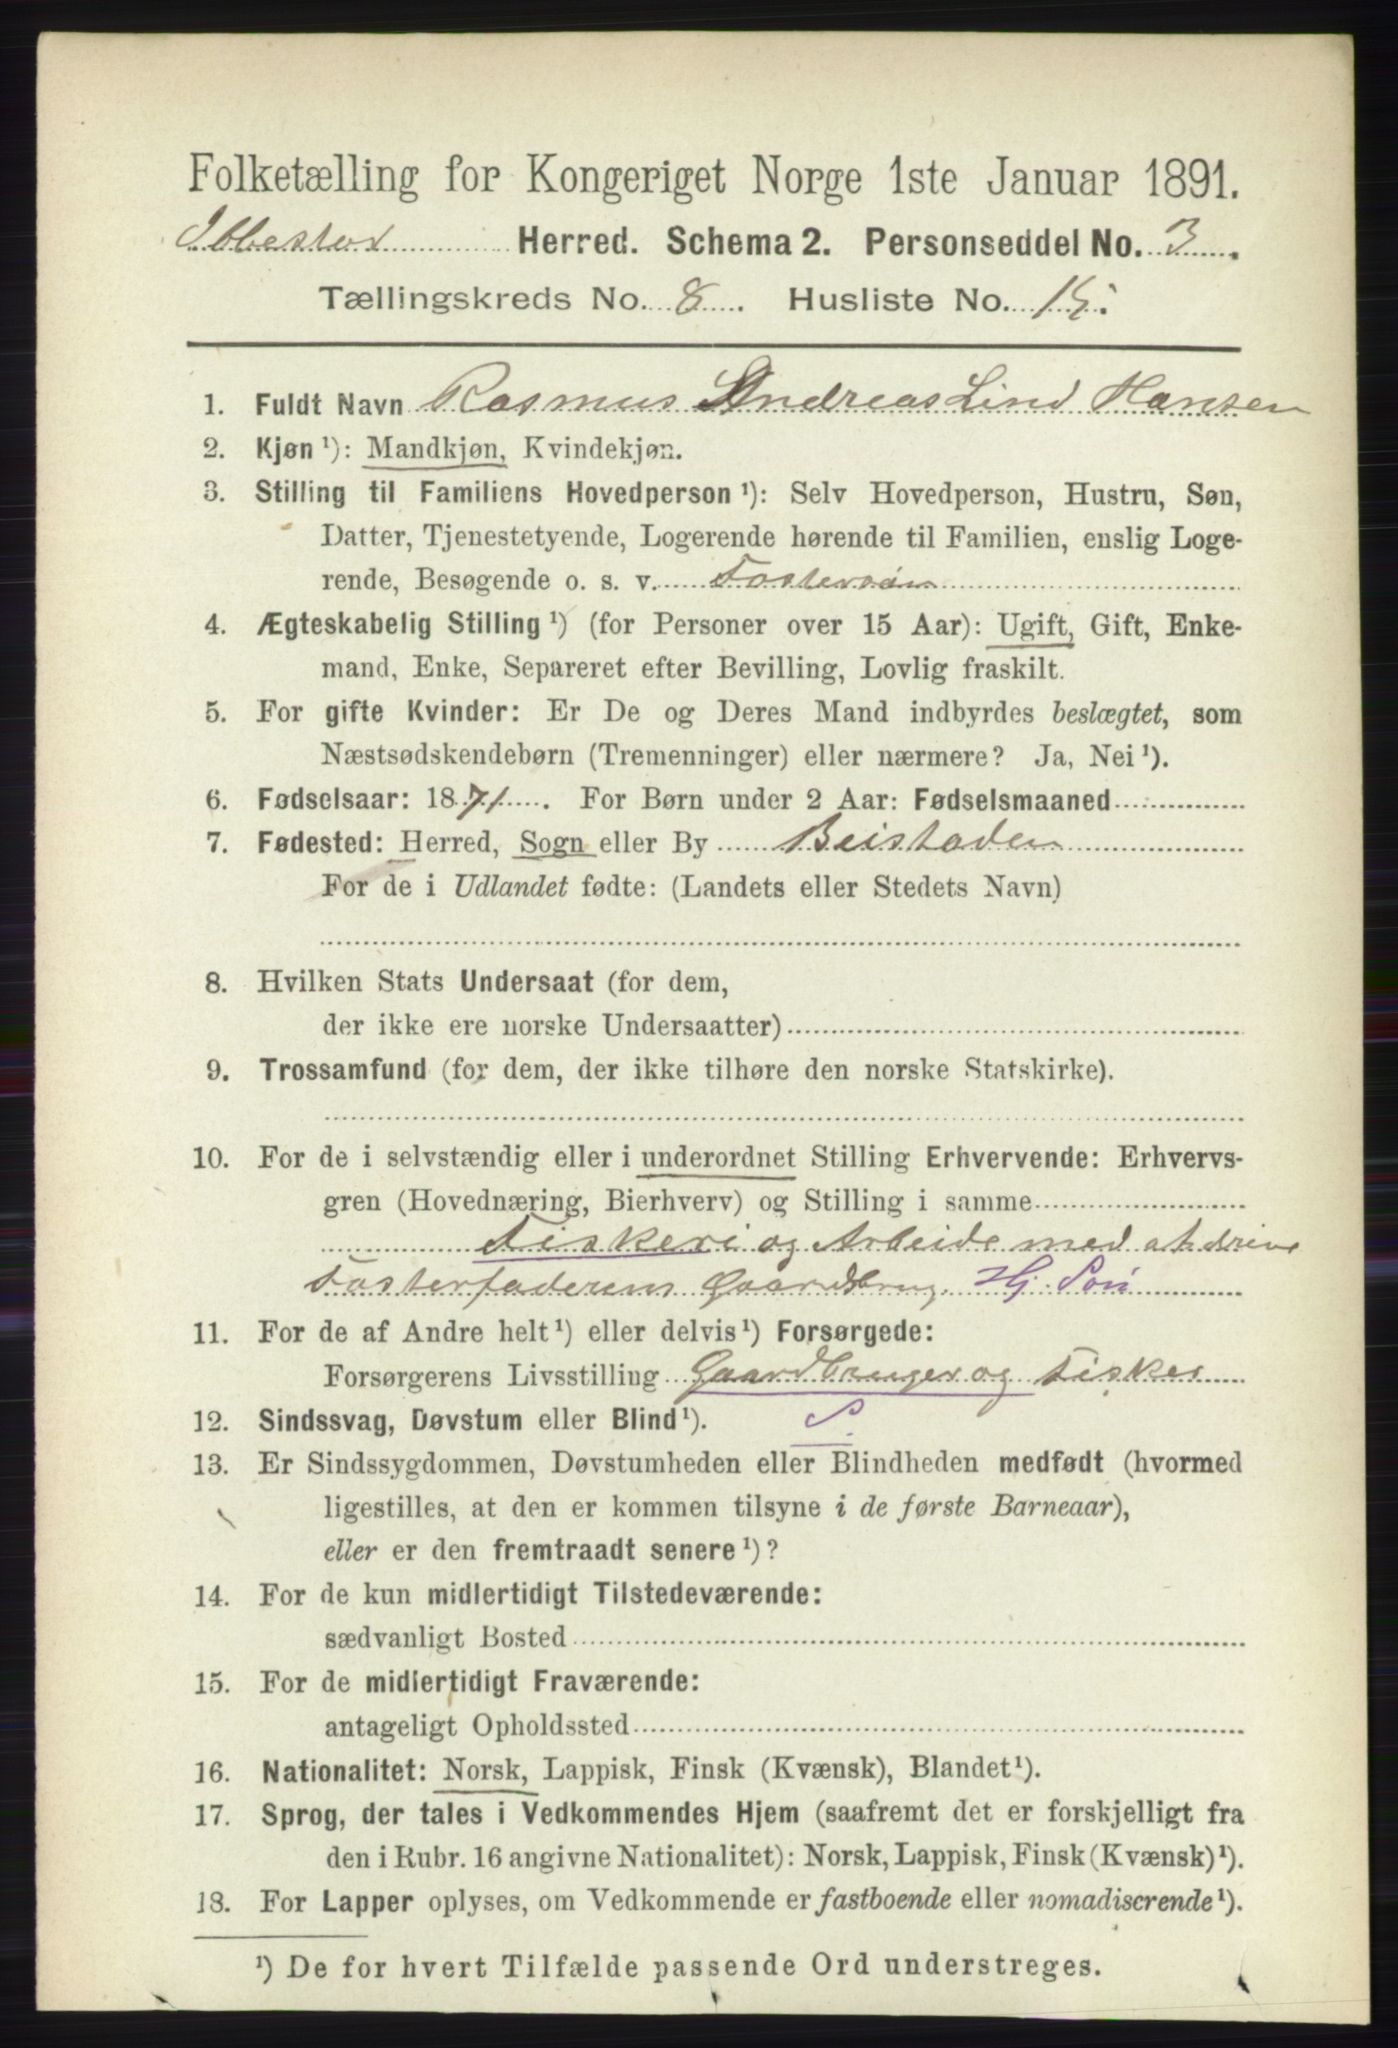 Folketælling for Kongeriget Norge 1ste Januar 1891.
Ibbestad Herred. Schema 2. Personseddel No. 3.
Tællingskreds No. 8. Husliste No. 15.
1. Fuldt Navn Rasmus Andreas Lind Hansen
2. Kjøn ¹): Mandkjøn, Kvindekjøn.
3. Stilling til Familiens Hovedperson ¹): Selv Hovedperson, Hustru, Søn,
Datter, Tjenestetyende, Logerende hørende til Familien, enslig Loge-
rende, Besøgende o. s. v. Fostersøn
4. Ægteskabelig Stilling ¹) (for Personer over 15 Aar): Ugift, Gift, Enke-
mand, Enke, Separeret efter Bevilling, Lovlig fraskilt.
5. For gifte Kvinder: Er De og Deres Mand indbyrdes beslægtet, som
Næstsødskendebørn (Tremenninger) eller nærmere? Ja, Nei ¹).
6. Fødselsaar: 1871. For Børn under 2 Aar: Fødselsmaaned
7. Fødested: Herred, Sogn eller By Beistaden
For de i Udlandet fødte: (Landets eller Stedets Navn)
8. Hvilken Stats Undersaat (for dem,
der ikke ere norske Undersaatter)
9. Trossamfund (for dem, der ikke tilhøre den norske Statskirke).
10. For de i selvstændig eller i underordnet Stilling Erhvervende: Erhvervs-
gren (Hovednæring, Bierhverv) og Stilling i samme
Fiskeri og Arbeide med at drive
Fosterfaderens Gaardsbrug. Hj. Søn
11. For de af Andre helt ¹) eller delvis ¹) Forsørgede:
Forsørgerens Livsstilling Gaardbruger og Fisker
12. Sindssvag, Døvstum eller Blind ¹). S.
13. Er Sindssygdommen, Døvstumheden eller Blindheden medfødt (hvormed
ligestilles, at den er kommen tilsyne i de første Barneaar),
eller er den fremtraadt senere ¹)?
14. For de kun midlertidigt Tilstedeværende:
sædvanligt Bosted
15. For de midlertidigt Fraværende:
antageligt Opholdssted
16. Nationalitet: Norsk, Lappisk, Finsk (Kvænsk), Blandet ¹).
17. Sprog, der tales i Vedkommendes Hjem (saafremt det er forskjelligt fra
den i Rubr. 16 angivne Nationalitet): Norsk, Lappisk, Finsk (Kvænsk) ¹).
18. For Lapper oplyses, om Vedkommende er fastboende eller nomadiserende ¹).
¹) De for hvert Tilfælde passende Ord understreges.